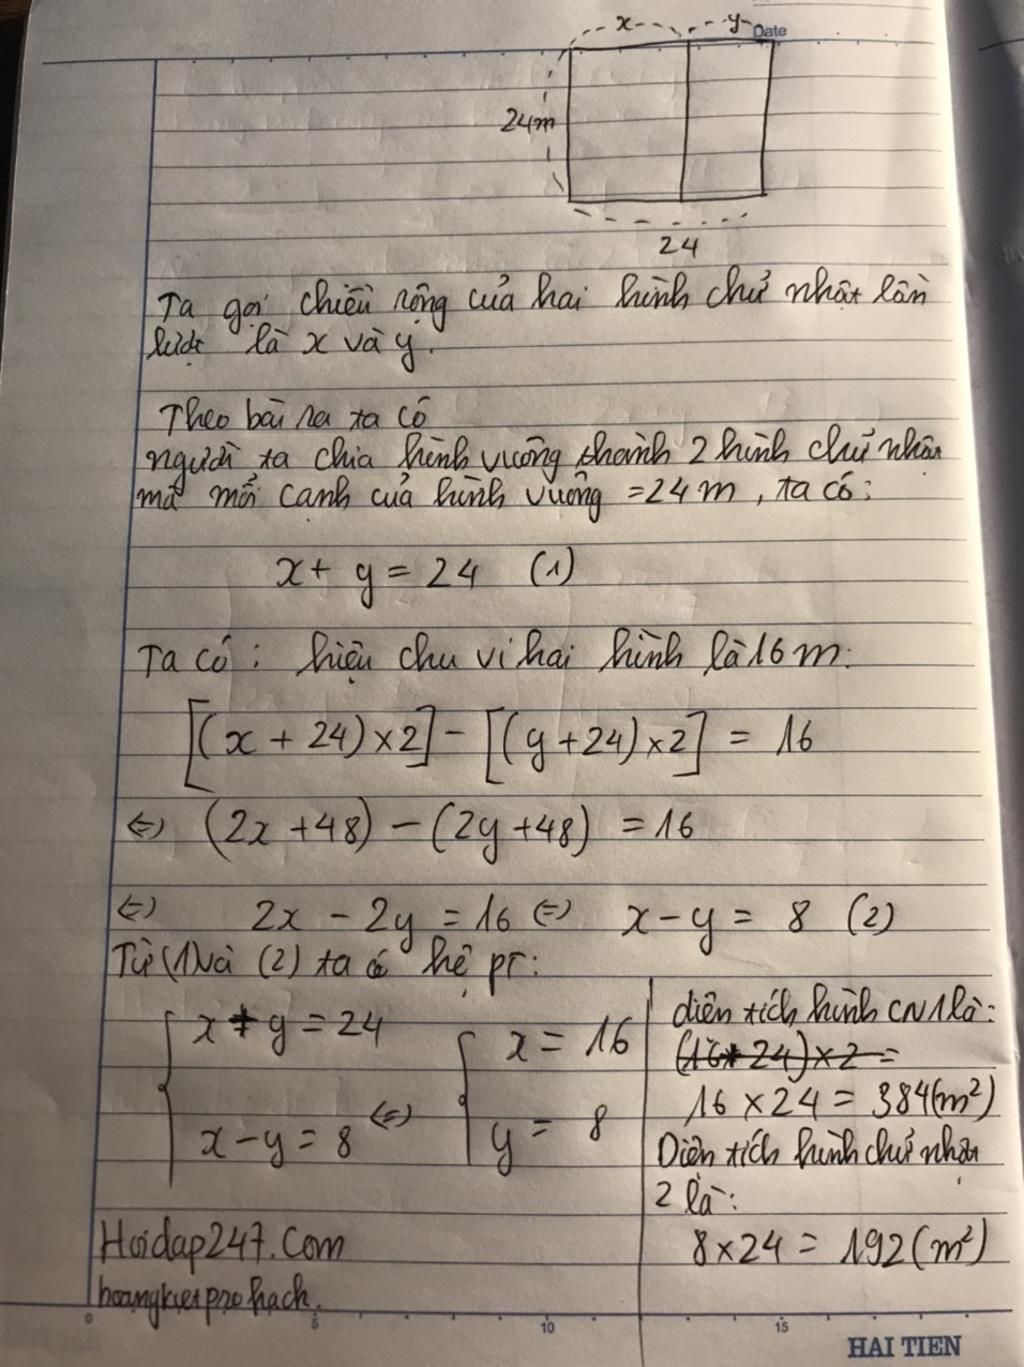 x y
Date
24m
24
Ta gọi chiều rộng của hai hình chữ nhật lần
lượt là x và y.
Theo bài ra ta có
người ta chia hình vuông thành 2 hình chữ nhật
mà mỗi cạnh của hình vuông = 24m, ta có:
x + y = 24 (1)
Ta có: hiệu chu vi hai hình là 16 m:
[(x + 24) × 2] - [(y + 24) × 2] = 16
<=> (2x + 48) - (2y + 48) = 16
<=> 2x - 2y = 16 <=> x - y = 8 (2)
Từ (1) và (2) ta có hệ pt:
{ x + y = 24
x - y = 8 <=> { x = 16
y = 8
diện tích hình CN 1 là:
(16+24)×2 =
16 × 24 = 384 (m²)
Diện tích hình chữ nhật
2 là:
8 × 24 = 192 (m²)
Hoidap247.Com
hoangkietprohach.
0 5 10 15
HAI TIEN